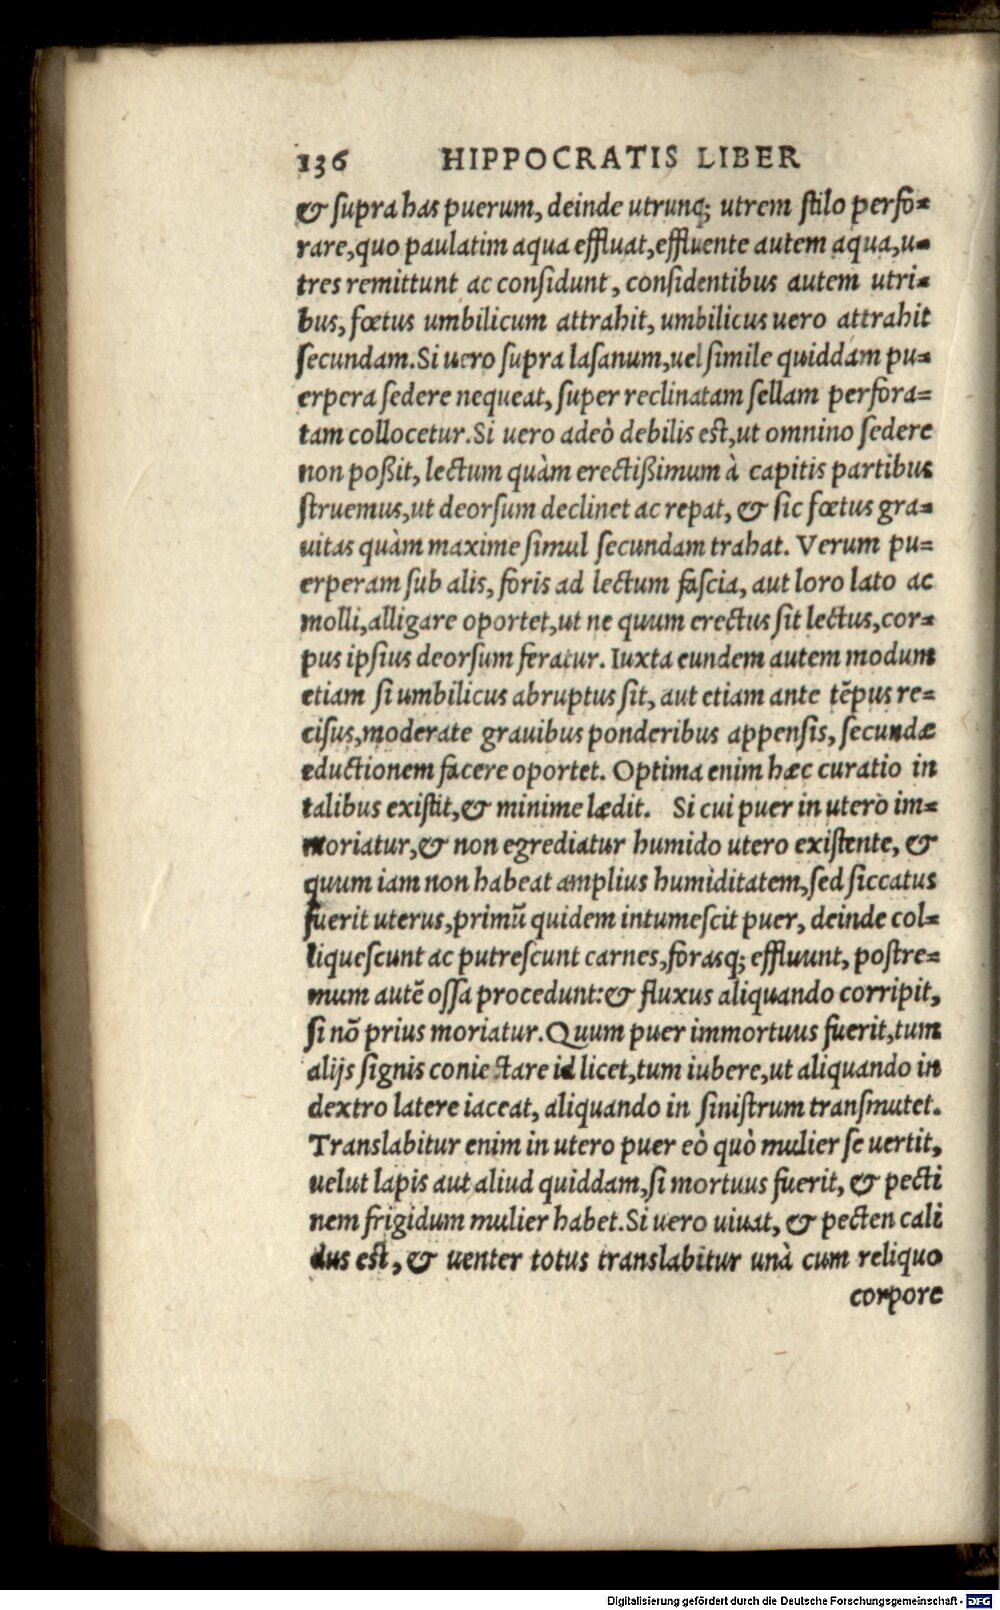 136 HIPPOCRATIS LIBER
& ſupra has puerum, deinde utrunq; utrem ſtilo perfo=
rare, quo paulatim aqua effluat, effluente autem aqua, u=
tres remittunt ac conſidunt, conſidentibus autem utri=
bus, fœtus umbilicum attrahit, umbilicus uero attrahit
ſecundam. Si uero ſupra laſanum, uel ſimile quiddam pu=
erpera ſedere nequeat, ſuper reclinatam ſellam perfora=
tam collocetur. Si uero adeò debilis eſt, ut omnino ſedere
non poßit, lectum quàm erectißimum à capitis partibus
ſtruemus, ut deorſum declinet ac repat, & ſic fœtus gra=
uitas quàm maxime ſimul ſecundam trahat. Verum pu=
erperam ſub alis, foris ad lectum faſcia, aut loro lato ac
molli, alligare oportet, ut ne quum erectus ſit lectus, cor=
pus ipſius deorſum feratur. Iuxta eundem autem modum
etiam ſi umbilicus abruptus ſit, aut etiam ante tēpus re=
ciſus, moderate grauibus ponderibus appenſis, ſecundæ
eductionem facere oportet. Optima enim hæc curatio in
talibus exiſtit, & minime lædit. Si cui puer in utero im=
moriatur, & non egrediatur humido utero exiſtente, &
quum iam non habeat amplius humiditatem, ſed ſiccatus
fuerit uterus, primū quidem intumeſcit puer, deinde col=
liqueſcunt ac putreſcunt carnes, forasq; effluunt, poſtre=
mum autē oſſa procedunt: & fluxus aliquando corripit,
ſi nō prius moriatur. Quum puer immortuus fuerit, tum
alijs ſignis coniectare id licet, tum iubere, ut aliquando in
dextro latere iaceat, aliquando in ſiniſtrum tranſmutet.
Translabitur enim in utero puer eò quò mulier ſe uertit,
uelut lapis aut aliud quiddam, ſi mortuus fuerit, & pecti
nem frigidum mulier habet. Si uero uiuat, & pecten cali
dus eſt, & uenter totus translabitur unà cum reliquo
corpore
Digitalisierung gefördert durch die Deutsche Forschungsgemeinschaft - DFG